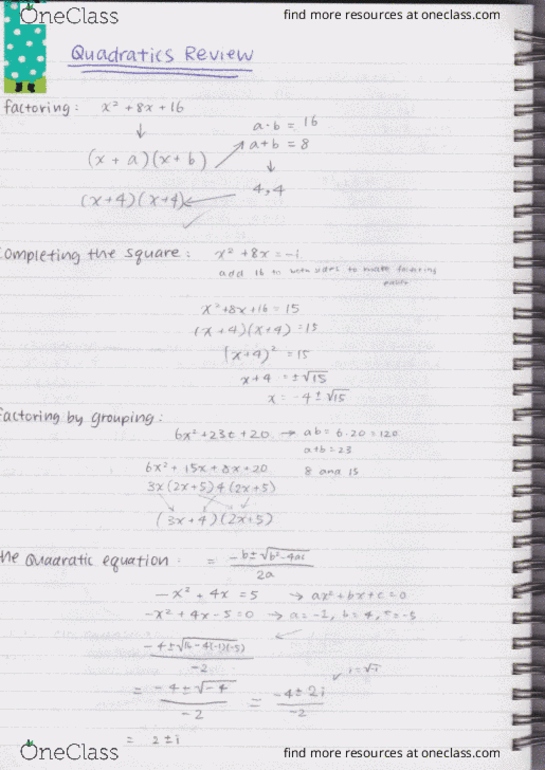 OneClass
find more resources at oneclass.com
Quadratics Review
factoring: x² + 8x + 16
a·b = 16
(x + a)(x + b) a+b = 8
4,4
(x+4)(x+4)
completing the square: x² + 8x = -1
add 16 to both sides to make factoring
easier
x² + 8x + 16 = 15
(x + 4)(x+4) = 15
(x+4)² = 15
x+4 = ±√15
x = -4 ± √15
Factoring by grouping:
6x² + 23x + 20 → ab = 6·20 = 120
a+b = 23
6x² + 15x + 8x + 20 8 and 15
3x(2x+5)4(2x+5)
(3x+4)(2x+5)
the Quadratic equation = -b±√b²-4ac
2a
-x² + 4x = 5 → ax² + bx + c = 0
-x² + 4x - 5 = 0 → a = -1, b = 4, c = -5
-4±√16-4(-1)(-5)
-2
i = √-1
= -4±√-4 = -4±2i
-2 -2
= 2 ± i
OneClass
find more resources at oneclass.com